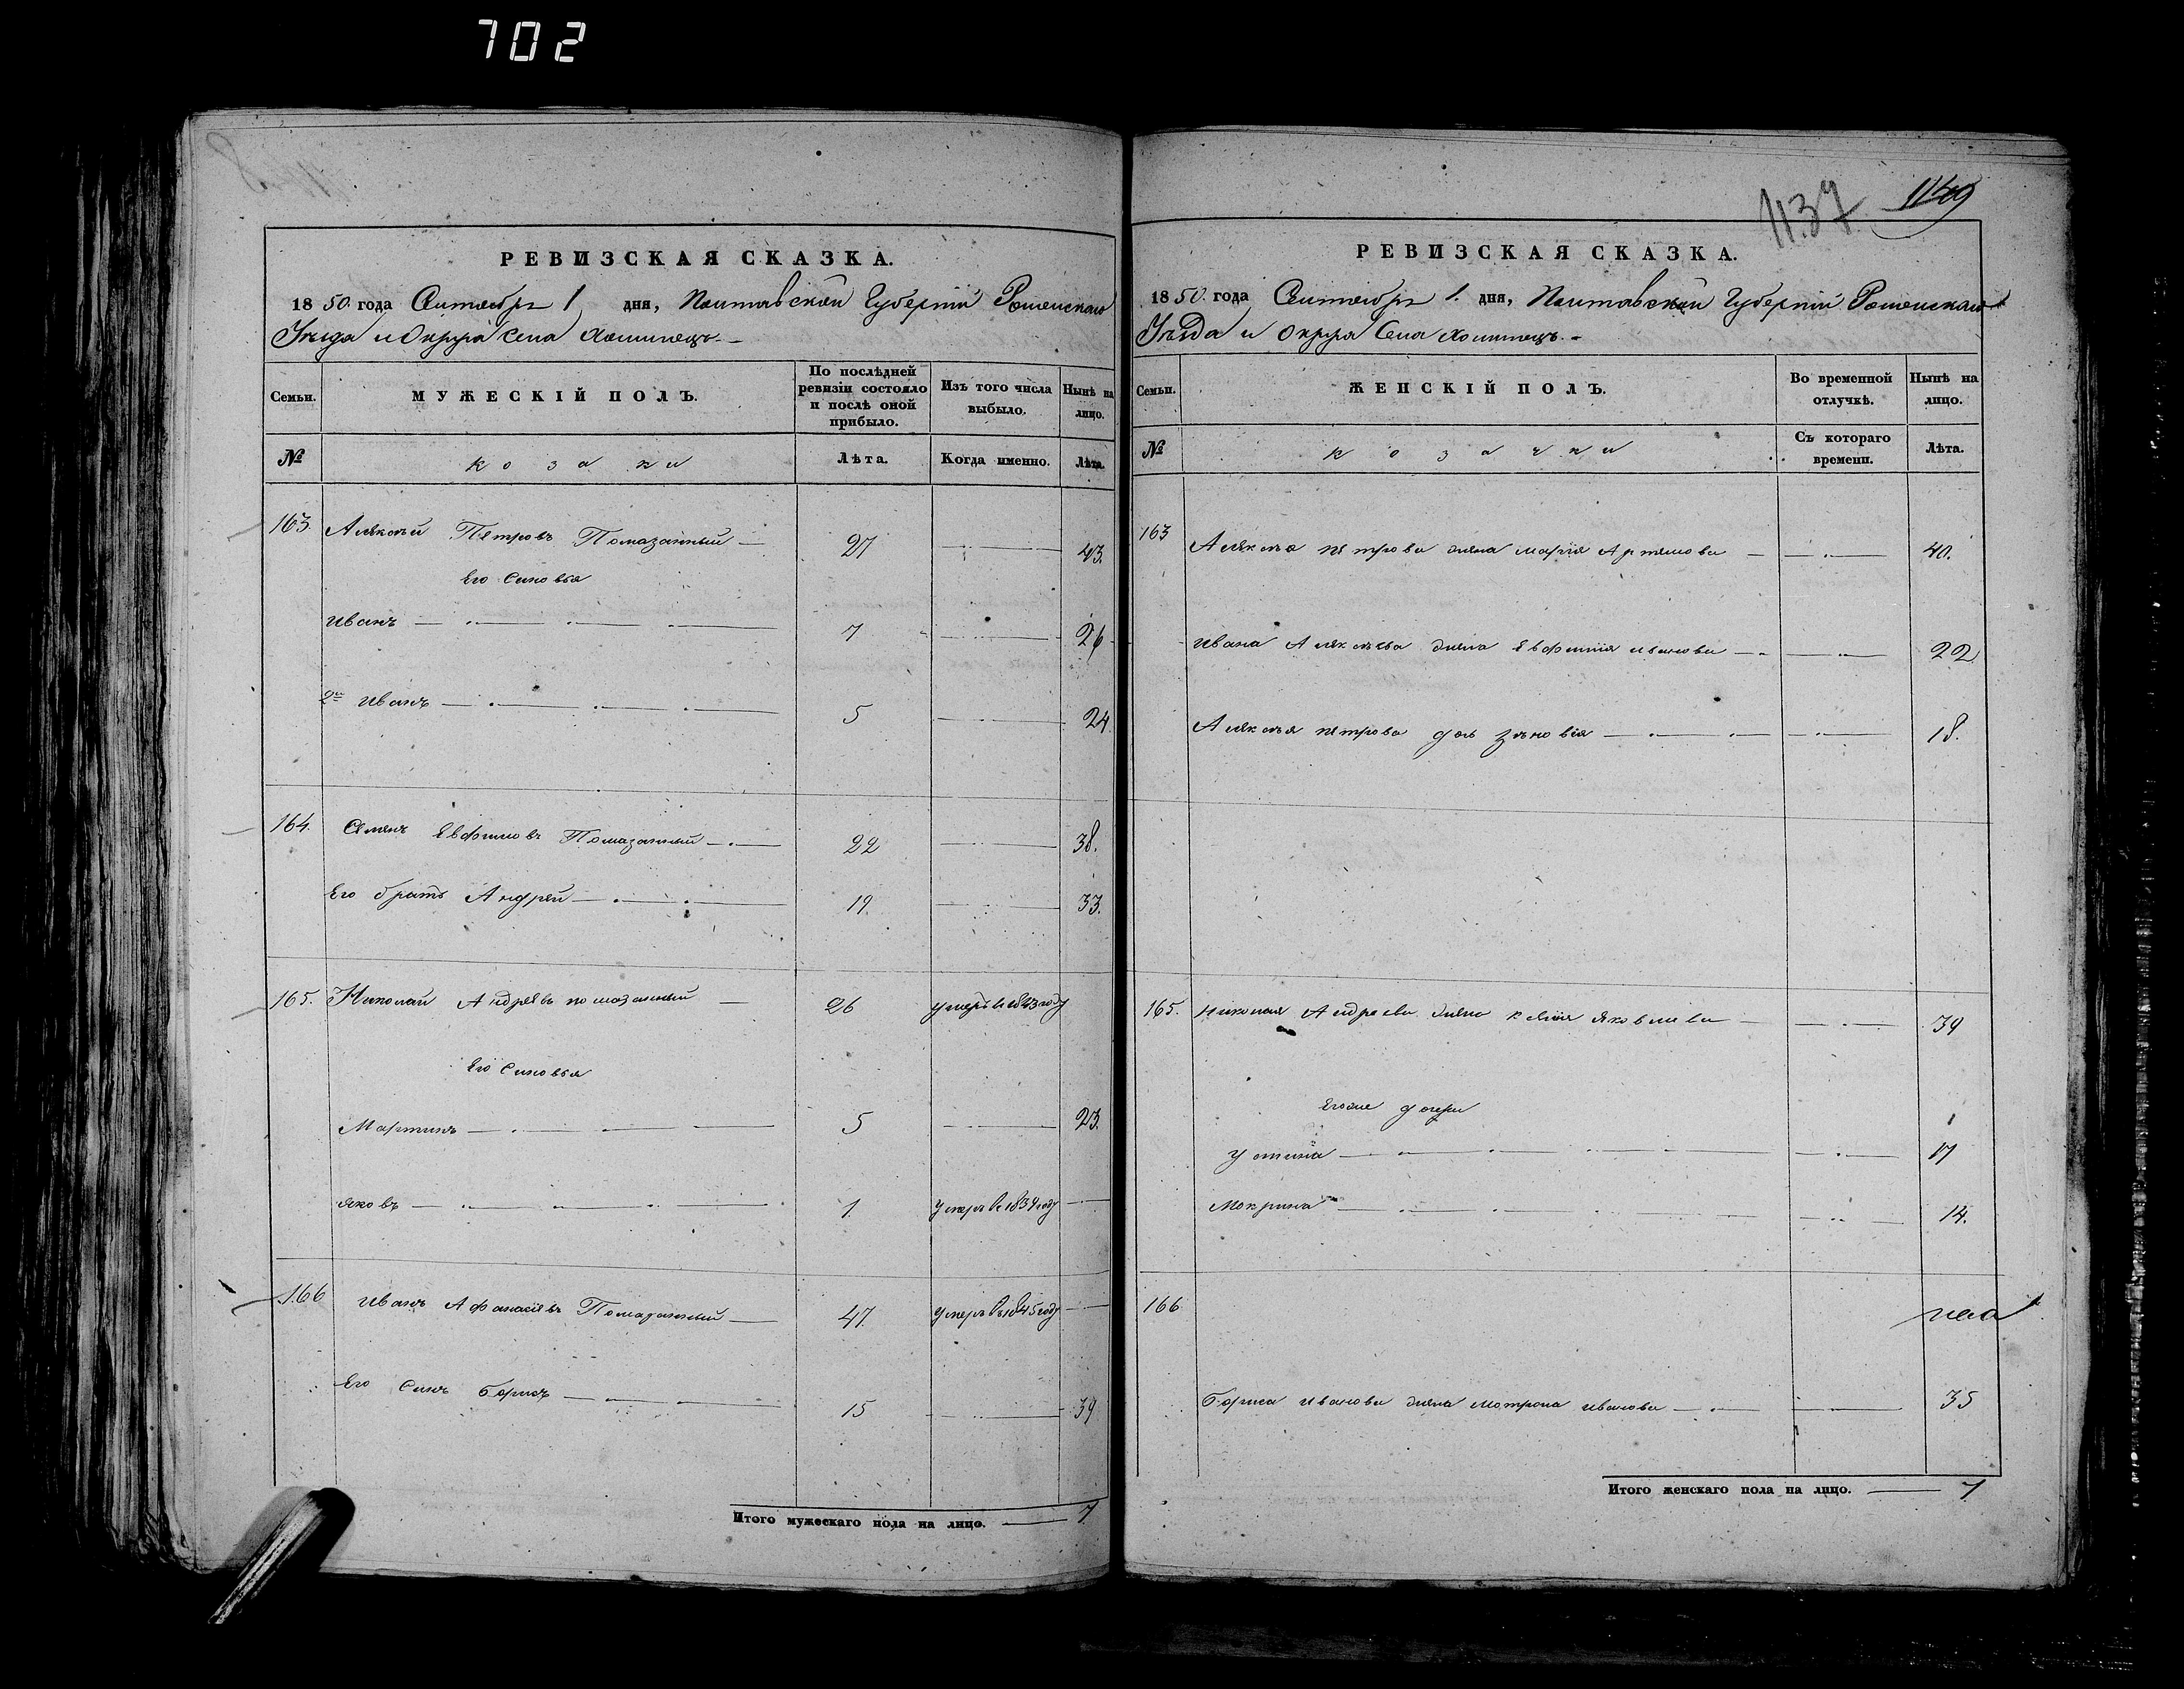 702
РЕВИЗСКАЯ СКАЗКА.
1850. года Сентября 1 дня, Полтавской Губерніи Роменскаго
Уѣзда и Округа села Хоминецъ.
Семьи.
МУЖЕСКІЙ ПОЛЪ.
По послѣдней ревизіи состояло и послѣ оной прибыло.
Изъ того числа выбыло.
Нынѣ на лицо.
№
козаки
Лѣта.
Когда именно.
Лѣта.
163. Алексѣй Петровъ Помазанный 27 43.
Его Сыновья
Иванъ 7 26
2й Иванъ 5 24
164. Семенъ Евфимовъ Помазанный 22 38.
Его братъ Андрей 19. 33.
165. Николай Андреевъ помазанный 26 умеръ в 1843 году
Его Сыновья
Мартинъ 5 23.
яковъ 1. умеръ в 1834 году
166 Иванъ Афанасіевъ Помазанный 47. умеръ в 1845 году
Его Сынъ борисъ 15 39
Итого мужескаго пола на лицо. 7
1137 1149
РЕВИЗСКАЯ СКАЗКА.
1850. года Сентября 1. дня, Полтавской Губерніи Роменскаго
Уѣзда и Округа Села хоминецъ.
Семьи.
ЖЕНСКІЙ ПОЛЪ.
Во временной отлучкѣ.
Нынѣ на лицо.
№
козачки
Съ котораго времени.
Лѣта.
163 Алексѣя петрова жена марія Артемова 40.
Ивана Алексѣева жена Евфимія иванова 22
Алексѣя петрова дочь зѣновія 18.
165. Николая Андреева жена ксенія яковлева 39
Егоже дочери
Устинія 17
Мокрина 14.
166
Бориса Иванова жена мотрона иванова 35
Итого женскаго пола на лицо. 7